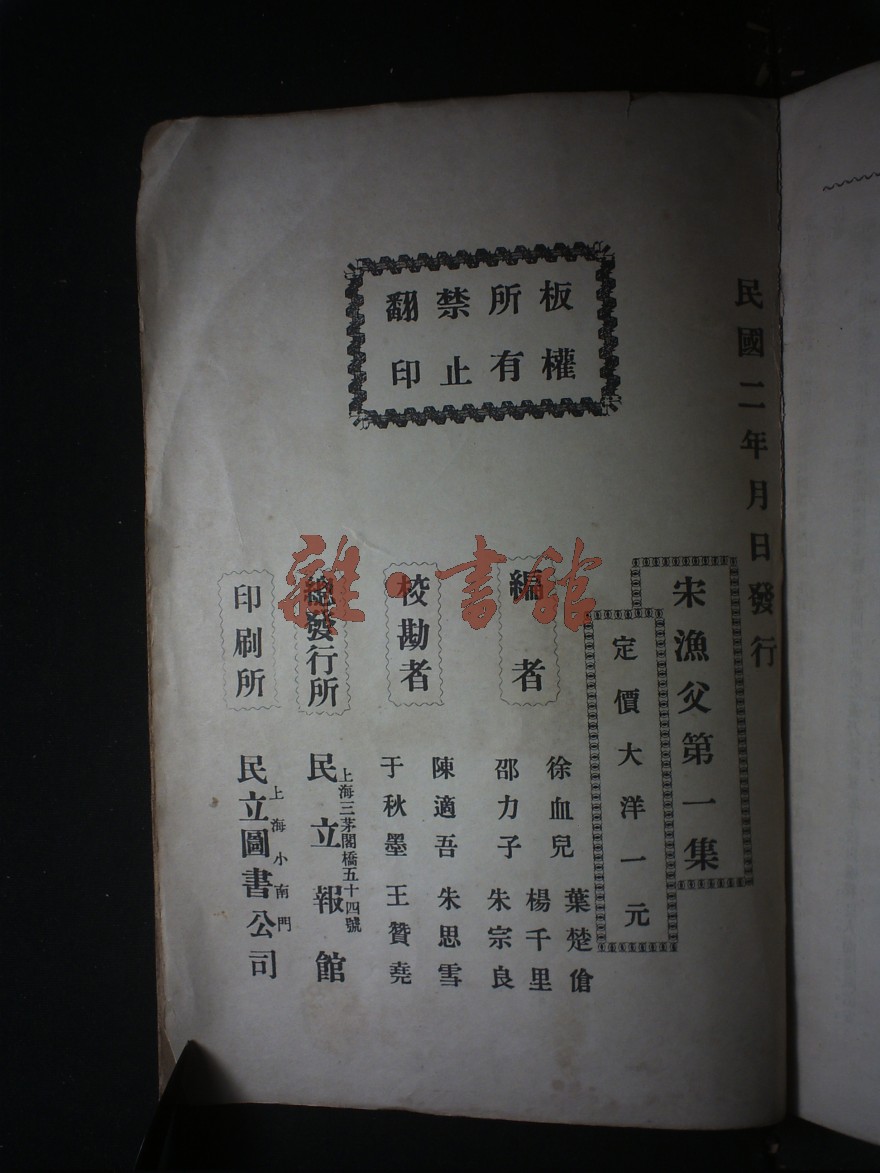 板權
所有
禁止
翻印
民國二年月日發行
宋漁父第一集
定價大洋一元
編者
徐血兒
葉楚傖
楊千里
邵力子
朱宗良
校勘者
陳適吾
朱思雪
于秋墨
王贊堯
總發行所
上海三茅閣橋五十四號
民立報館
印刷所
上海小南門
民立圖書公司
雜·書館